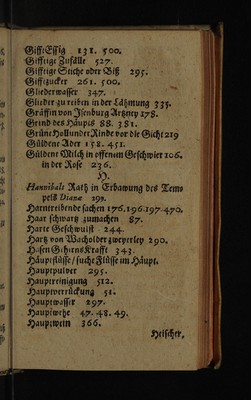 Gifft Essig 131. 500.
Gifftige Zufälle 527.
Gifftige Stiche oder Biß 295.
Gifftzucker 261. 500.
Gliederwasser 347.
Glieder zu reiben in der Lähmung 335.
Gräffin von Jsenburg Artzney 178.
Grind des Häupts 88. 381.
Grüne Hollunder Rinde vor die Gicht 219
Güldene Ader 158. 451.
Güldene Milch in offenem Geschwier 106.
in der Rose 236.
H.
Hannibals Rath in Erbawung des Tem
pels Dianæ 299.
Harntreibende sachen 176. 196. 197. 470.
Haar schwartz zumachen 87.
Harte Geschwulst 244.
Hartz von Wacholder zweyerley 290.
Hasen Gehirns Krafft 343.
Häuptflüsse / suche Flüsse im Häupt.
Hauptpulver 295.
Hauptreinigung 512.
Hauptverrückung 51.
Hauptwasser 297.
Hauptwehe 47. 48. 49.
Hauptwein 366.
Heischer,